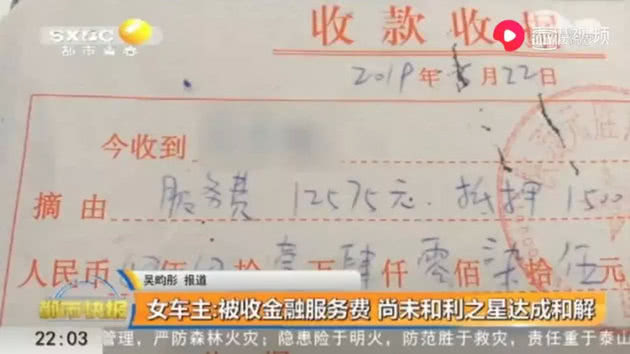 SXBC
都市青春
收款收据
2019年5月22日
今收到
摘由 服务费 12575元. 抵押 1500
人民币 佰 拾 壹 万 肆 仟 零 佰 柒 拾 伍 元
吴昀彤 报道
都市快报
女车主:被收金融服务费 尚未和利之星达成和解
22:03 管理,严防森林火灾;隐患险于明火,防范胜于救灾,责任重于泰山